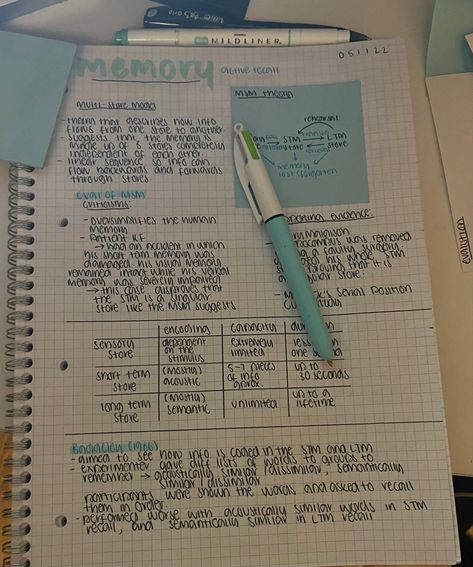 MILDLINER
051122
memory
active recall
multi-store model
- theory that describes how info
flows from one store to another.
- suggests that the memory is
made up of 3 stores completely
independent of each other
- linear sequence as info can
flow backwards and forwards
through stores
MSM theory
rehearsal
STM
store
LTM
store
memory
lost / forgotten
eval of MSM
criticisms:
- oversimplifies the human
memory
- patient KF
→ had an incident in which
his short term memory was
damaged. his visual memory
remained intact while his verbal
memory was severely impaired
→ this case disproves that
the STM is a singular
store like the MSM suggests
evidence:
was removed
surgery.
his whole STM
that it is
store.
Serial Position
encoding
capacity
sensory
store
dependent
on the
stimulus
extremely
limited
one second
short term
store
(mostly)
acoustic
5-7 pieces
of info
approx.
up to
30 seconds
long term
store
(mostly)
semantic
unlimited
up to a
lifetime
Baddeley (1966)
- aimed to see how info is coded in the STM and LTM
- experimenter gave diff lists of words to groups to
remember → acoustically similar/dissimilar, semantically
similar/dissimilar
participants were shown the words and asked to recall
them in order.
- performed worse with acoustically similar words in STM
recall, and semantically similar in LTM recall
evolution